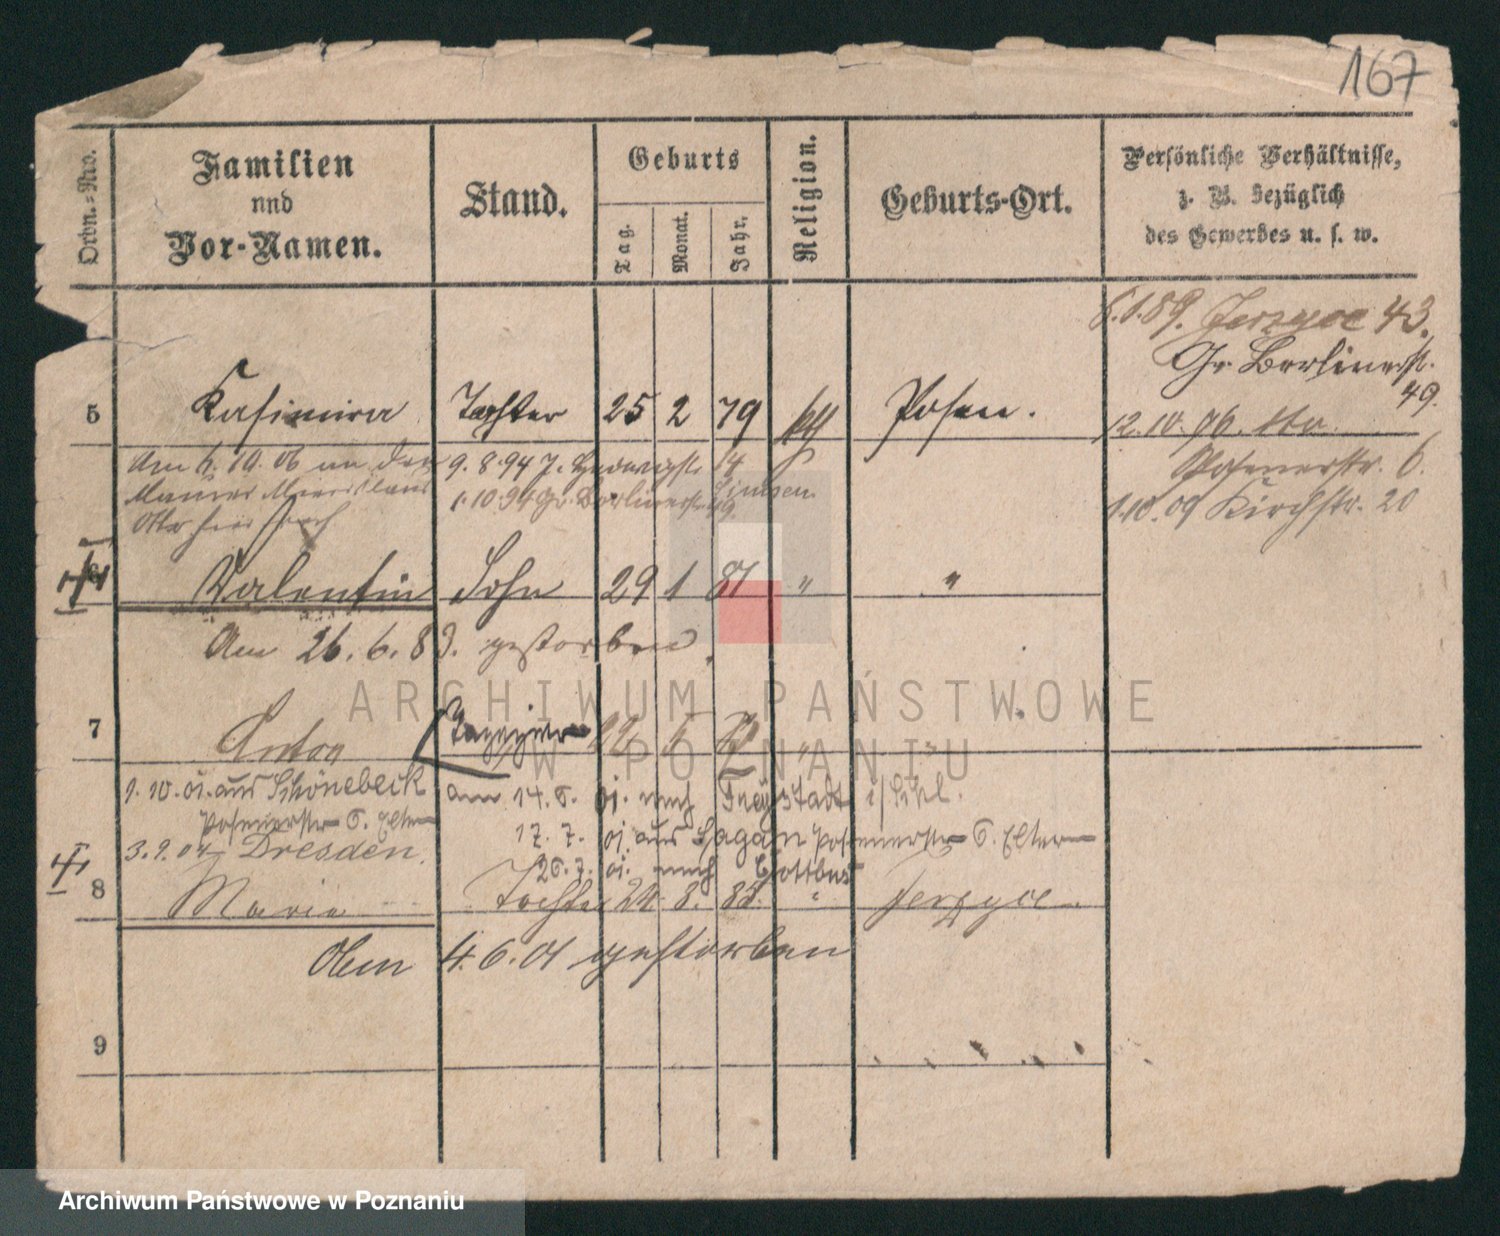 167
Ordn.-Nro.
Familien
und
Vor-Namen.
Stand.
Geburts
Tag.
Monat.
Jahr.
Religion.
Geburts-Ort.
Persönliche Verhältnisse,
z. B. bezüglich
des Gewerbes u. s. w.
6.1.89. Jerzyce 43.
Gr. Berlinerstr.
49.
5 Kasimira Tochter 25 2 79 kth Posen.
12.10.96.
Am 10.06 an den 9.8.94 14
Posenerstr. 6.
Maurer 1.10.94 Gr. Berlinerstr. 49
1.10.09 Kirchstr. 20
6 Valentin Sohn 29 1 81 " "
Am 26.6.83. gestorben.
ARCHIWUM PAŃSTWOWE
7 Anton
W POZNANIU
1.10.01. aus Schönebeck am 14.6. 01. nach Freystadt i/Schl.
Posenerstr 6. Eltern 17.7. 01. aus Sagan Posenerstr 6. Eltern
3.9.04 Dresden.
26.7. 01. nach Cottbus
8 Maria Tochter 24. 8. 83. " Jerzyce
4.6.01 gestorben
9
Archiwum Państwowe w Poznaniu